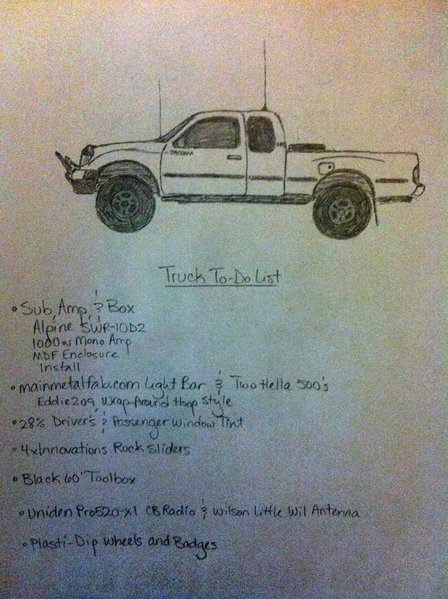 TACOMA
Truck To-Do List
• Sub, Amp, & Box
Alpine SWR-10D2
1000w Mono Amp
MDF Enclosure
Install
• mainmetalfab.com Light Bar & Two Hella 500's
Eddie209 Wrap-Around Hoop Style
• 28% Driver's & Passenger Window Tint
• 4xInnovations Rock Sliders
• Black 60" Toolbox
• Uniden Pro520-XL CB Radio & Wilson Little Wil Antenna
• Plasti-Dip Wheels and Badges